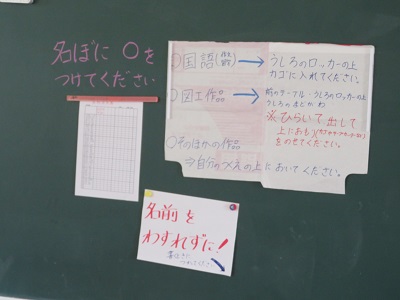 名ぼに ○を
つけてください
○国語( →うしろのロッカーの上
カゴに入れてください。
○図工作品 →前のテーブル・うしろのロッカーの上
うしろのまどがわ
※ひらいて出して
上におもし
をのせてください。
○そのほかの作品
⇒自分のつくえの上においてください。
名前を
わすれずに!